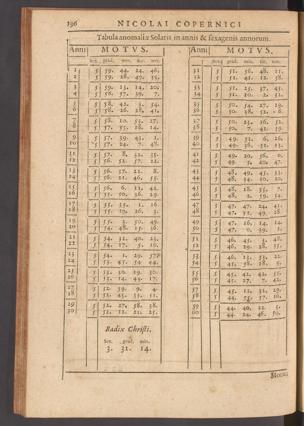 196 NICOLAI COPERNICI
Tabula anomaliæ Solaris in annis & sexagenis annorum.
Anni MOTVS. Anni MOTVS.
sex. grad. min. sec.
1 5 59. 44. 24. 46.
2 5 59. 28. 49. 33.
3 5 59. 13. 14. 20.
4 5 58. 57. 39. 7.
5 5 58. 42. 3. 54.
6 5 58. 26. 28. 41.
7 5 58. 10. 53. 27.
8 5 57. 55. 18. 14.
9 5 57. 39. 43. 1.
10 5 57. 24. 7. 48.
11 5 57. 8. 32. 35.
12 5 56. 52. 57. 22.
13 5 56. 37. 22. 8.
14 5 56. 21. 46. 55.
15 5 56. 6. 11. 42.
16 5 55. 50. 36. 29.
17 5 55. 35. 1. 16.
18 5 55. 19. 26. 3.
19 5 55. 3. 50. 49.
20 5 54. 48. 15. 36.
21 5 54. 32. 40. 23.
22 5 54. 17. 5. 10.
23 5 54. 1. 29. 57.
24 5 53. 45. 54. 44.
25 5 53. 30. 19. 30.
26 5 53. 14. 44. 17.
27 5 52. 59. 9. 4.
28 5 52. 43. 33. 51.
29 5 52. 27. 58. 38.
30 5 52. 12. 23. 25.
Radix Christi.
sex. grad. min.
3. 31. 14.
31 5 51. 56. 48. 11.
32 5 51. 41. 12. 58.
33 5 51. 25. 37. 45.
34 5 51. 10. 2. 32.
35 5 50. 54. 27. 19.
36 5 50. 38. 52. 6.
37 5 50. 23. 16. 52.
38 5 50. 7. 41. 39.
39 5 49. 52. 6. 26.
40 5 49. 36. 31. 13.
41 5 49. 20. 56. 0.
42 5 49. 5. 20. 47.
43 5 48. 49. 45. 33.
44 5 48. 34. 10. 20.
45 5 48. 18. 35. 7.
46 5 48. 2. 59. 54.
47 5 47. 47. 24. 41.
48 5 47. 31. 49. 28.
49 5 47. 16. 14. 14.
50 5 47. 0. 39. 1.
51 5 46. 45. 3. 48.
52 5 46. 29. 28. 35.
53 5 46. 13. 53. 22.
54 5 45. 58. 18. 9.
55 5 45. 42. 42. 55.
56 5 45. 27. 7. 42.
57 5 45. 11. 32. 29.
58 5 44. 55. 57. 16.
59 5 44. 40. 22. 3.
60 5 44. 24. 46. 50.